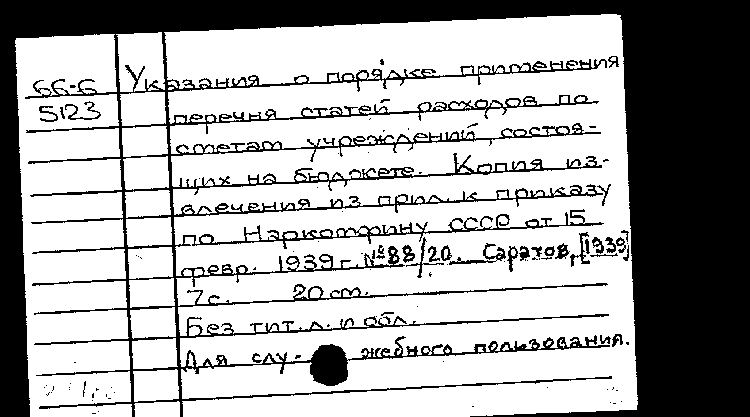 66-6 Указания о порядке применения
5123 перечня статей расходов по
сметам учреждений, состоя-
щих на бюджете. Копия из-
влечения из прил. к приказу
по Наркомфину СССР от 15
февр. 1939 г. №88/20. Саратов, [1939]
7 с. 20 см.
Без тит. л. и обл.
Для слу- жебного пользования.